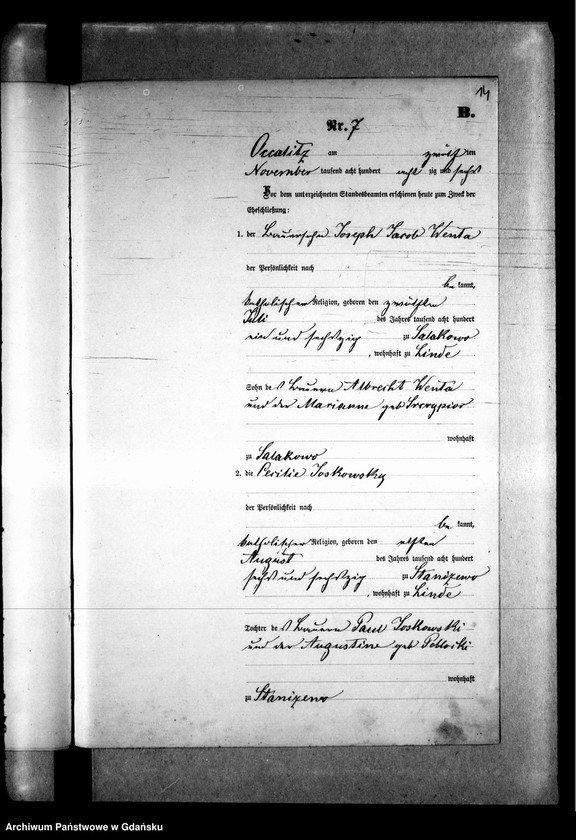 14
B.
Nr. 7
Occalitz am zwölften
November tausend acht hundert acht zig und sechs
Vor dem unterzeichneten Standesbeamten erschienen heute zum Zweck der
Eheschließung:
1. der Bauersohn Joseph Jacob Wenta
der Persönlichkeit nach
be kannt,
katholischer Religion, geboren den zwölften
Juli des Jahres tausend acht hundert
ein und sechszig zu Salakowo
, wohnhaft zu Linde
Sohn des Bauern Albrecht Wenta
und der Marianne geb
wohnhaft
zu Salakowo
2. die Cecilie Joskowsky
der Persönlichkeit nach
be kannt,
katholischer Religion, geboren den elften
August des Jahres tausend acht hundert
sechs und sechszig zu Stanizewo
, wohnhaft zu Linde
Tochter des Bauern Paul Joskowski
und der Augustine geb Poblocki
wohnhaft
zu Stanizewo
Archiwum Państwowe w Gdańsku